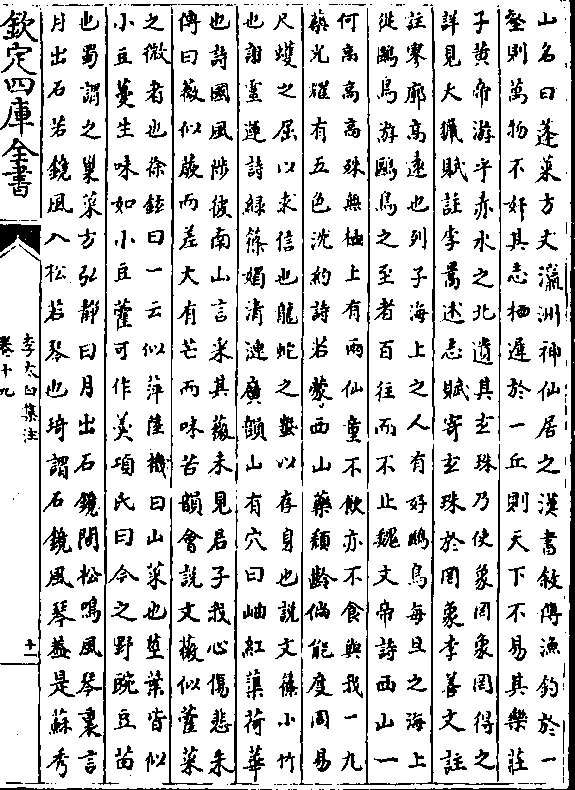 山名曰蓬萊方丈瀛洲神仙居之漢書敘傳漁釣於一
壑則萬物不奸其志栖遲於一丘則天下不易其樂莊
子黃帝游乎赤水之北遺其玄珠乃使象罔象罔得之
詳見大獵賦註李暠述志賦寄玄珠於罔象李善文註
註寥廓高遠也列子海上之人有好鷗鳥每旦之海上
從鷗鳥游鷗鳥之至者百往而不止魏文帝詩西山一
何高高高殊無極上有兩仙童不飲亦不食與我一九
藥光耀有五色沈約詩若蒙西山藥頽齡倘能度周易
尺蠖之屈以求信也龍蛇之蟄以存身也說文篠小竹
也謝靈運詩緑篠媚清漣廣韻山有穴曰岫紅蕖荷華
也詩國風陟彼南山言采其薇未見君子我心傷悲朱
傳曰薇似蕨而差大有芒而味苦韻會說文薇似藿菜
之微者也徐鉉曰一云似萍陸機曰山菜也莖葉皆似
小豆蔓生味如小豆藿可作羮項氏曰今之野豌豆苗
也蜀謂之巢菜方弘靜曰月出石鏡間松鳴風琴裏言
月出石若鏡風入松若琴也琦謂石鏡風琴葢是蘇秀
欽定四庫全書
李太白集注
卷十九
十